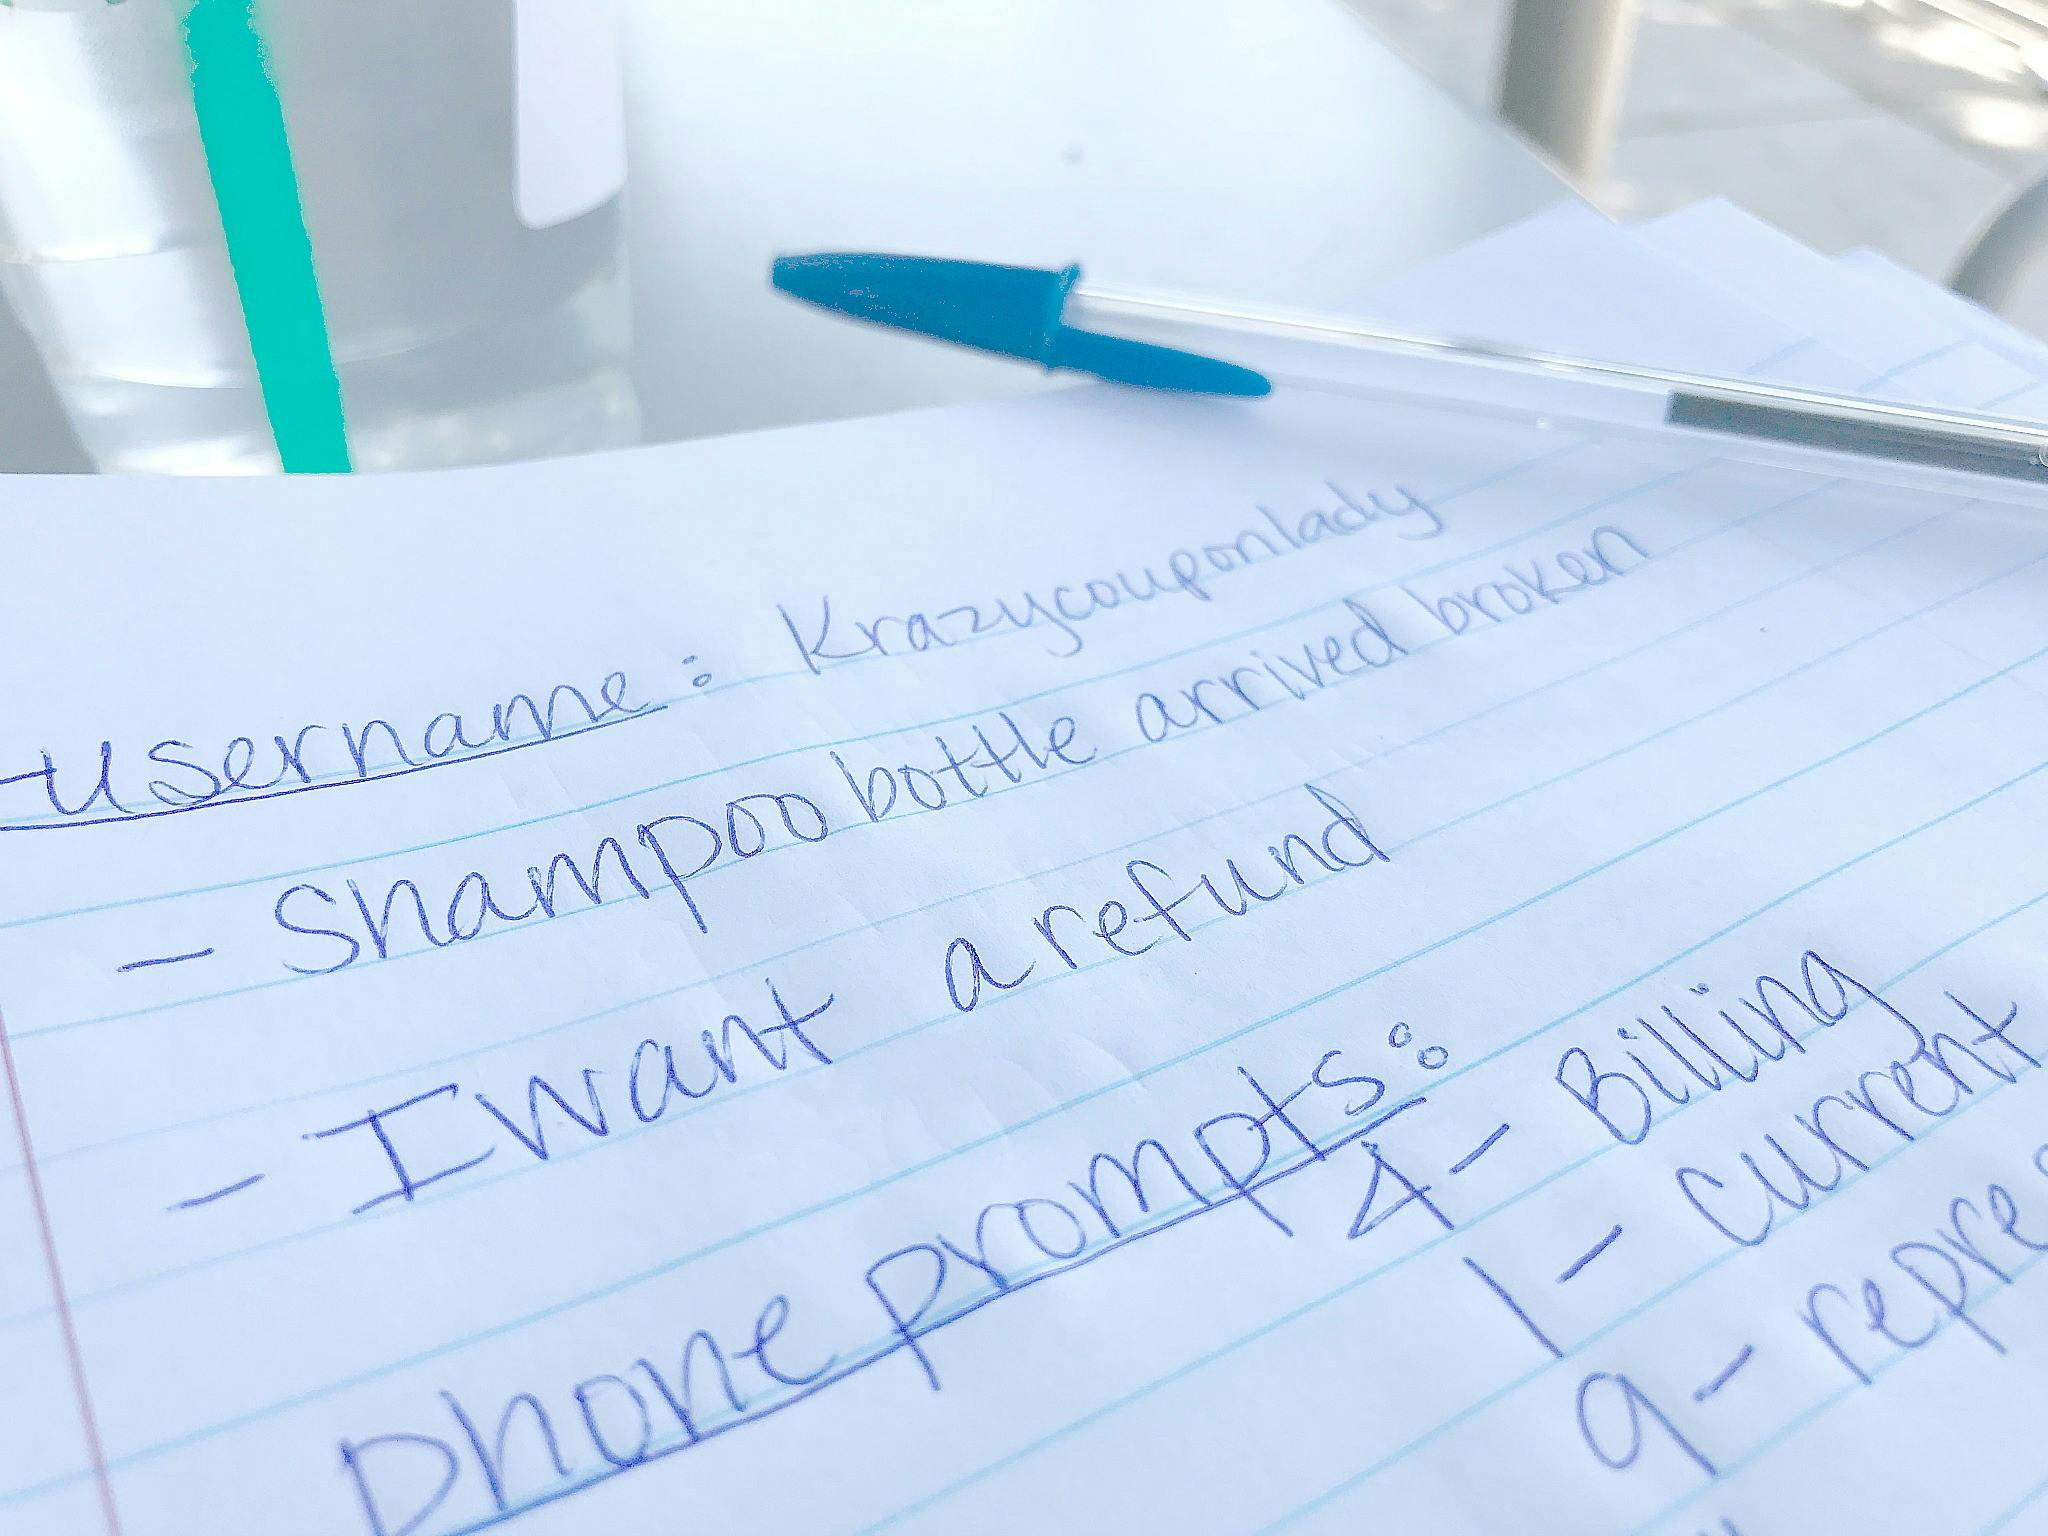 username: Krazycouponlady
- Shampoo bottle arrived broken
- I want a refund
Phone prompts:
4 - Billing
1 - current
9 - repre